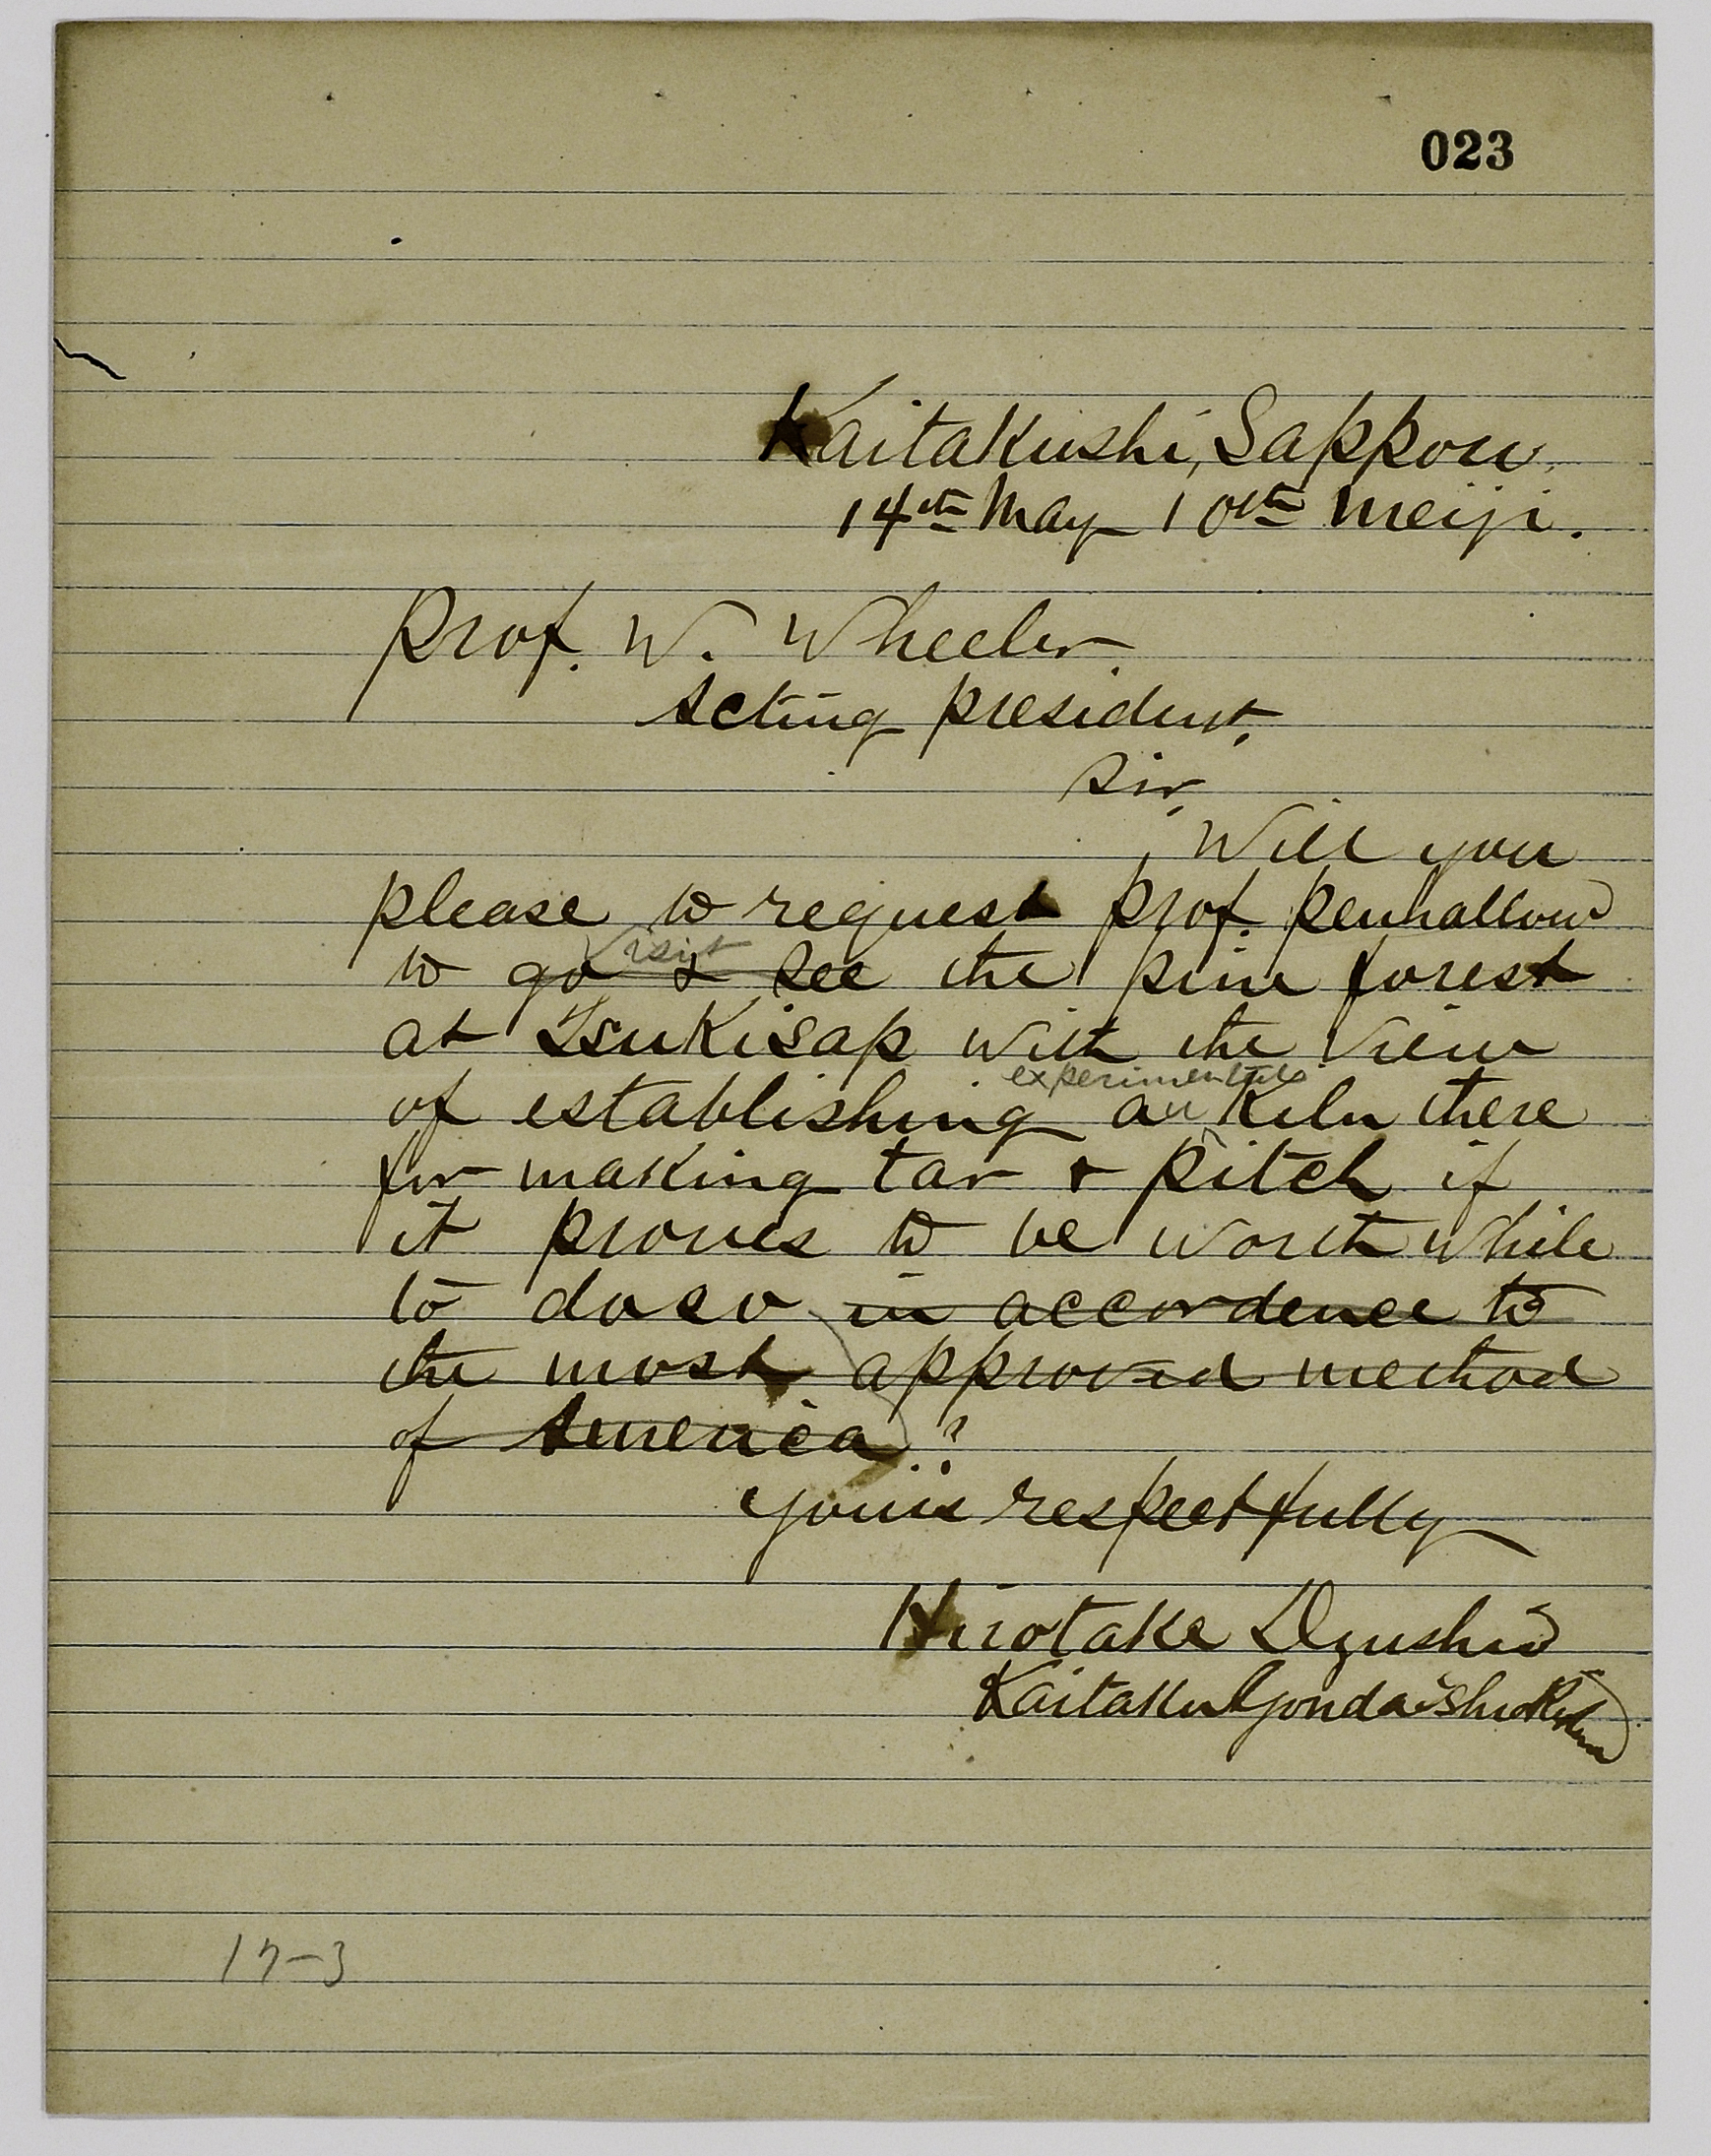 023
Kaitakushi, Sapporo,
14th May 10th Meiji.
Prof. W. Wheeler.
Acting president,
Sir,
Will you
please to request prof. penhallow
visit
to go & see the pine forest
at Tsukisap with the view
experimental
of establishing an Kiln there
for making tar & pitch if
it proves to be worth while
to do so in accordence to
the most approved method
of America?
yours respectfully
Hirotake Dzushio
Kaitaku Gondaishioki
17-3